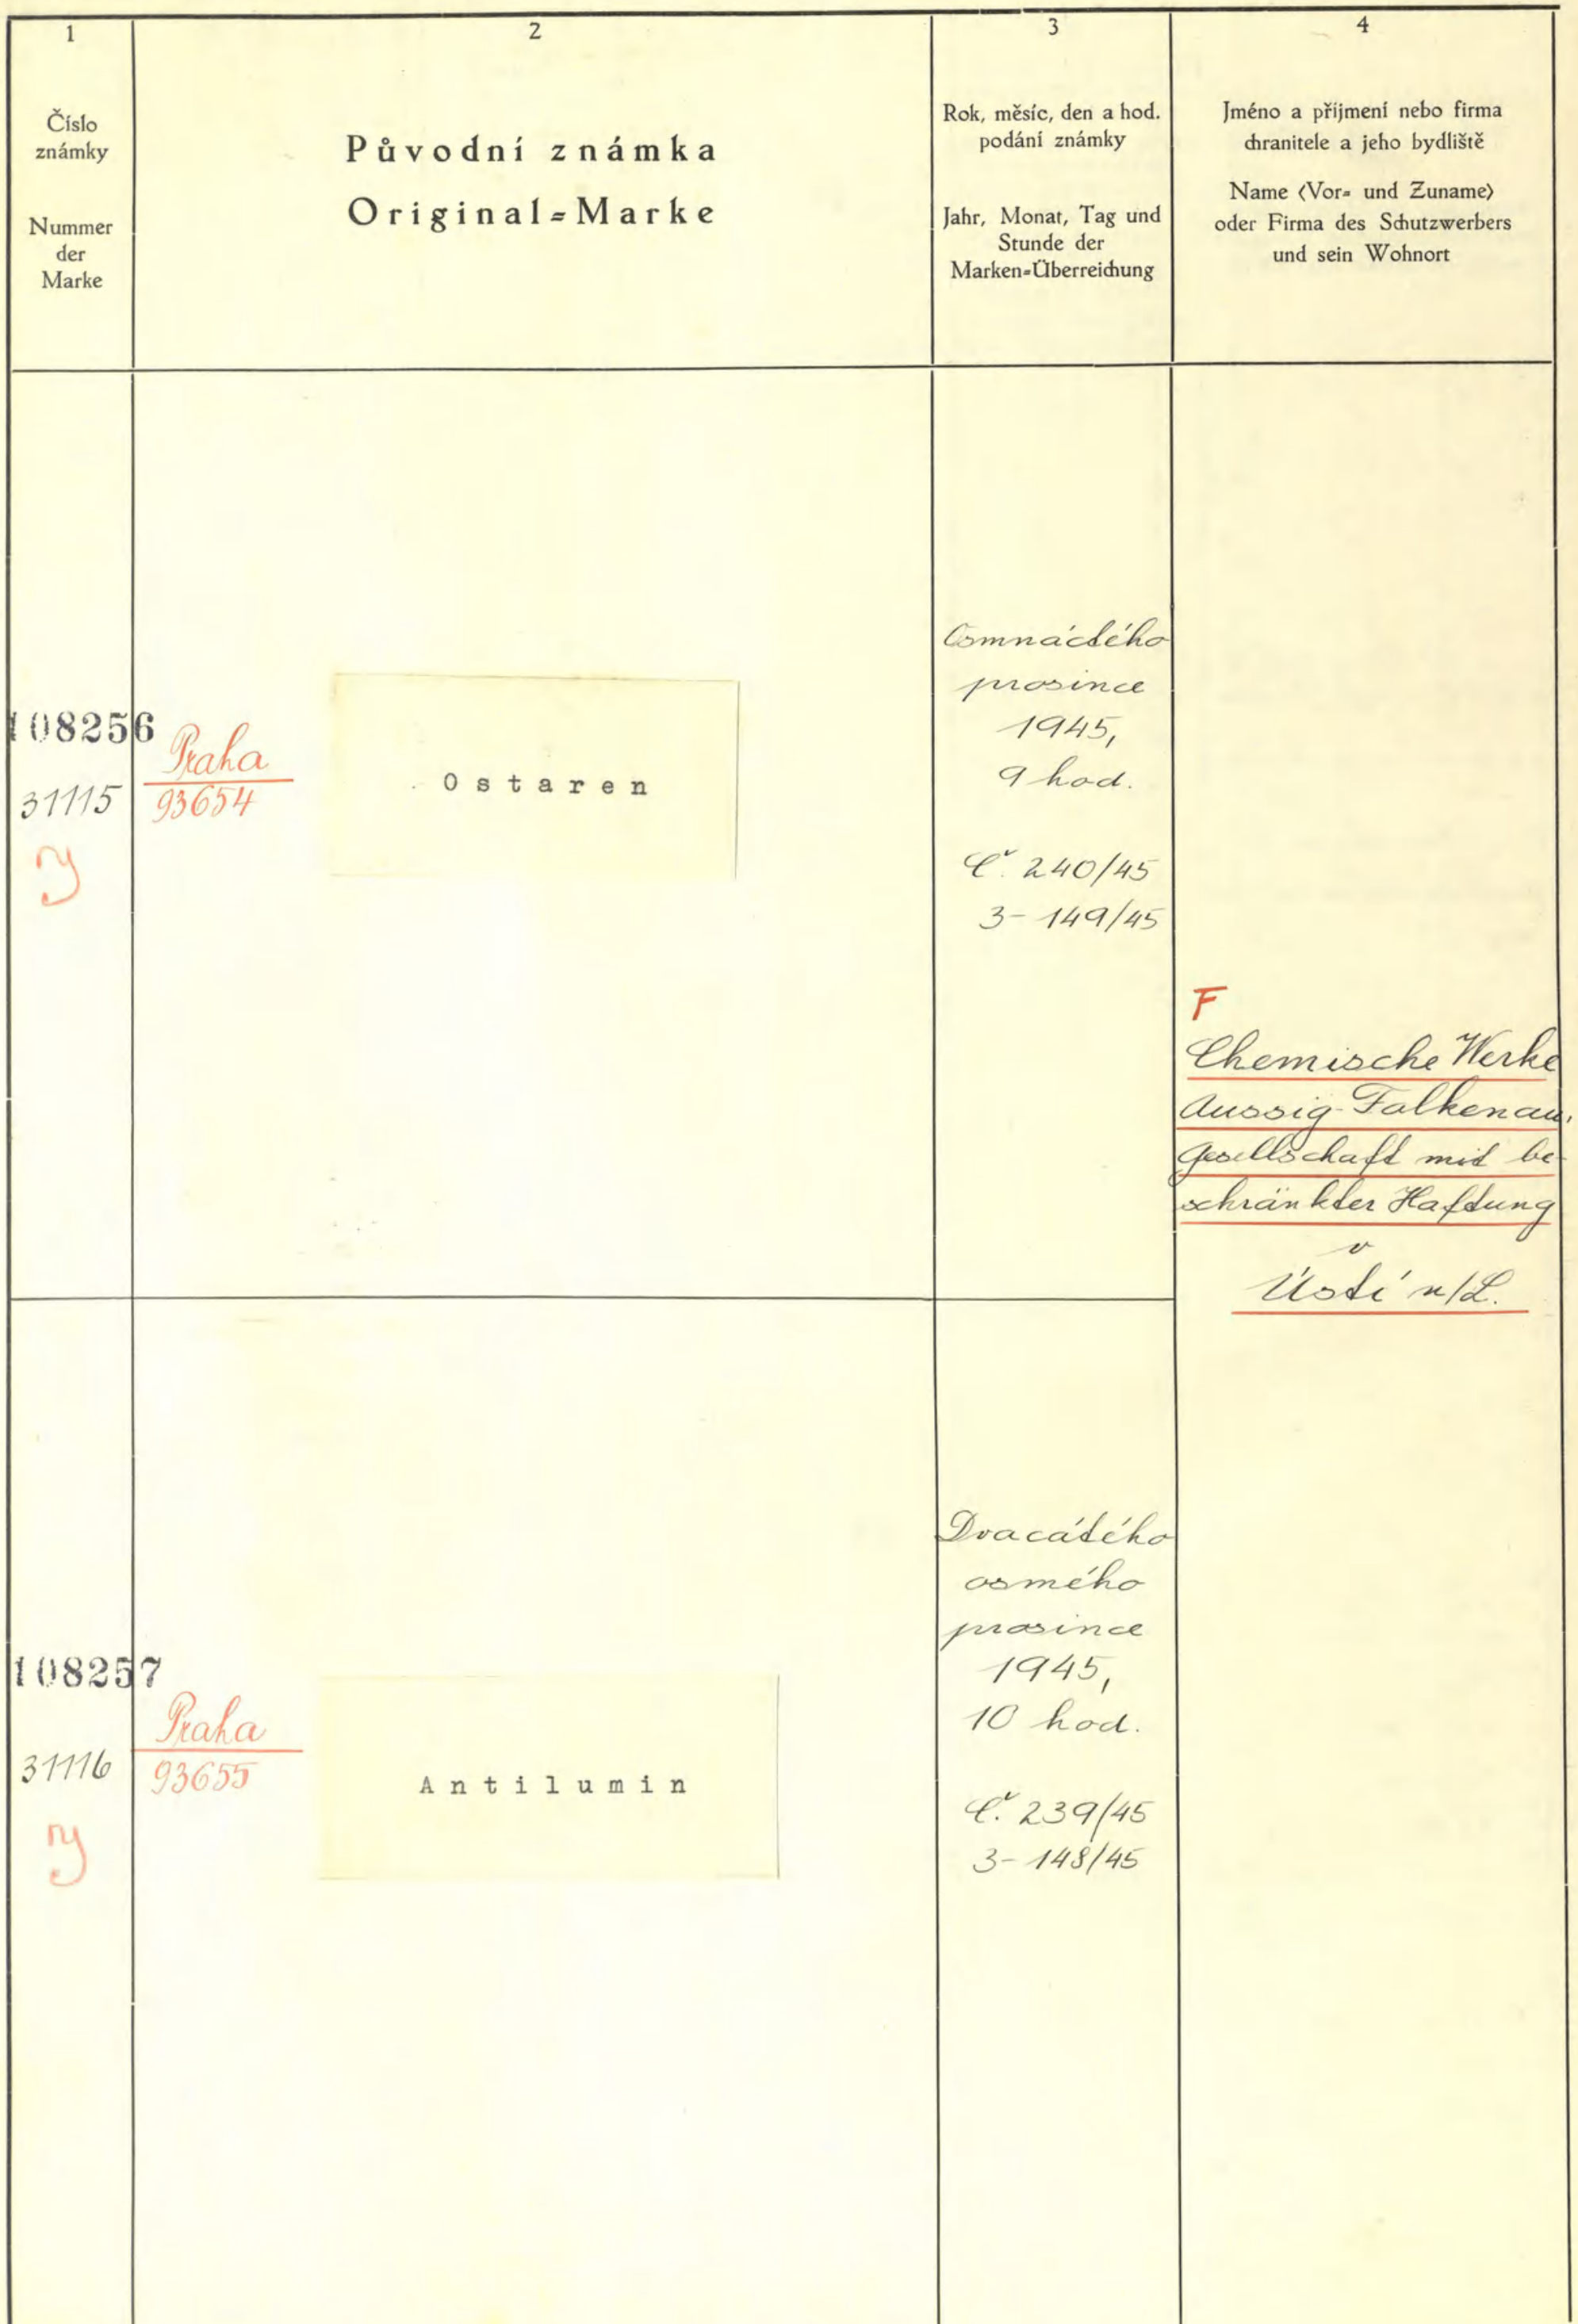 1
2
3
4
Číslo
známky
Nummer
der
Marke
Původní známka
Original=Marke
Rok, měsíc, den a hod.
podání známky
Jahr, Monat, Tag und
Stunde der
Marken=Überreichung
Jméno a příjmení nebo firma
chranitele a jeho bydliště
Name (Vor= und Zuname)
oder Firma des Schutzwerbers
und sein Wohnort
108256
31115
Praha
93654
Ostaren
Osmnáctého
prosince
1945,
9 hod.
Č. 240/45
3-149/45
F
Chemische Werke
Aussig-Falkenau,
Gesellschaft mit be-
schränkter Haftung
v
Ústí n/L.
108257
31116
Praha
93655
Antilumin
Dvacátého
osmého
prosince
1945,
10 hod.
Č. 239/45
3-148/45